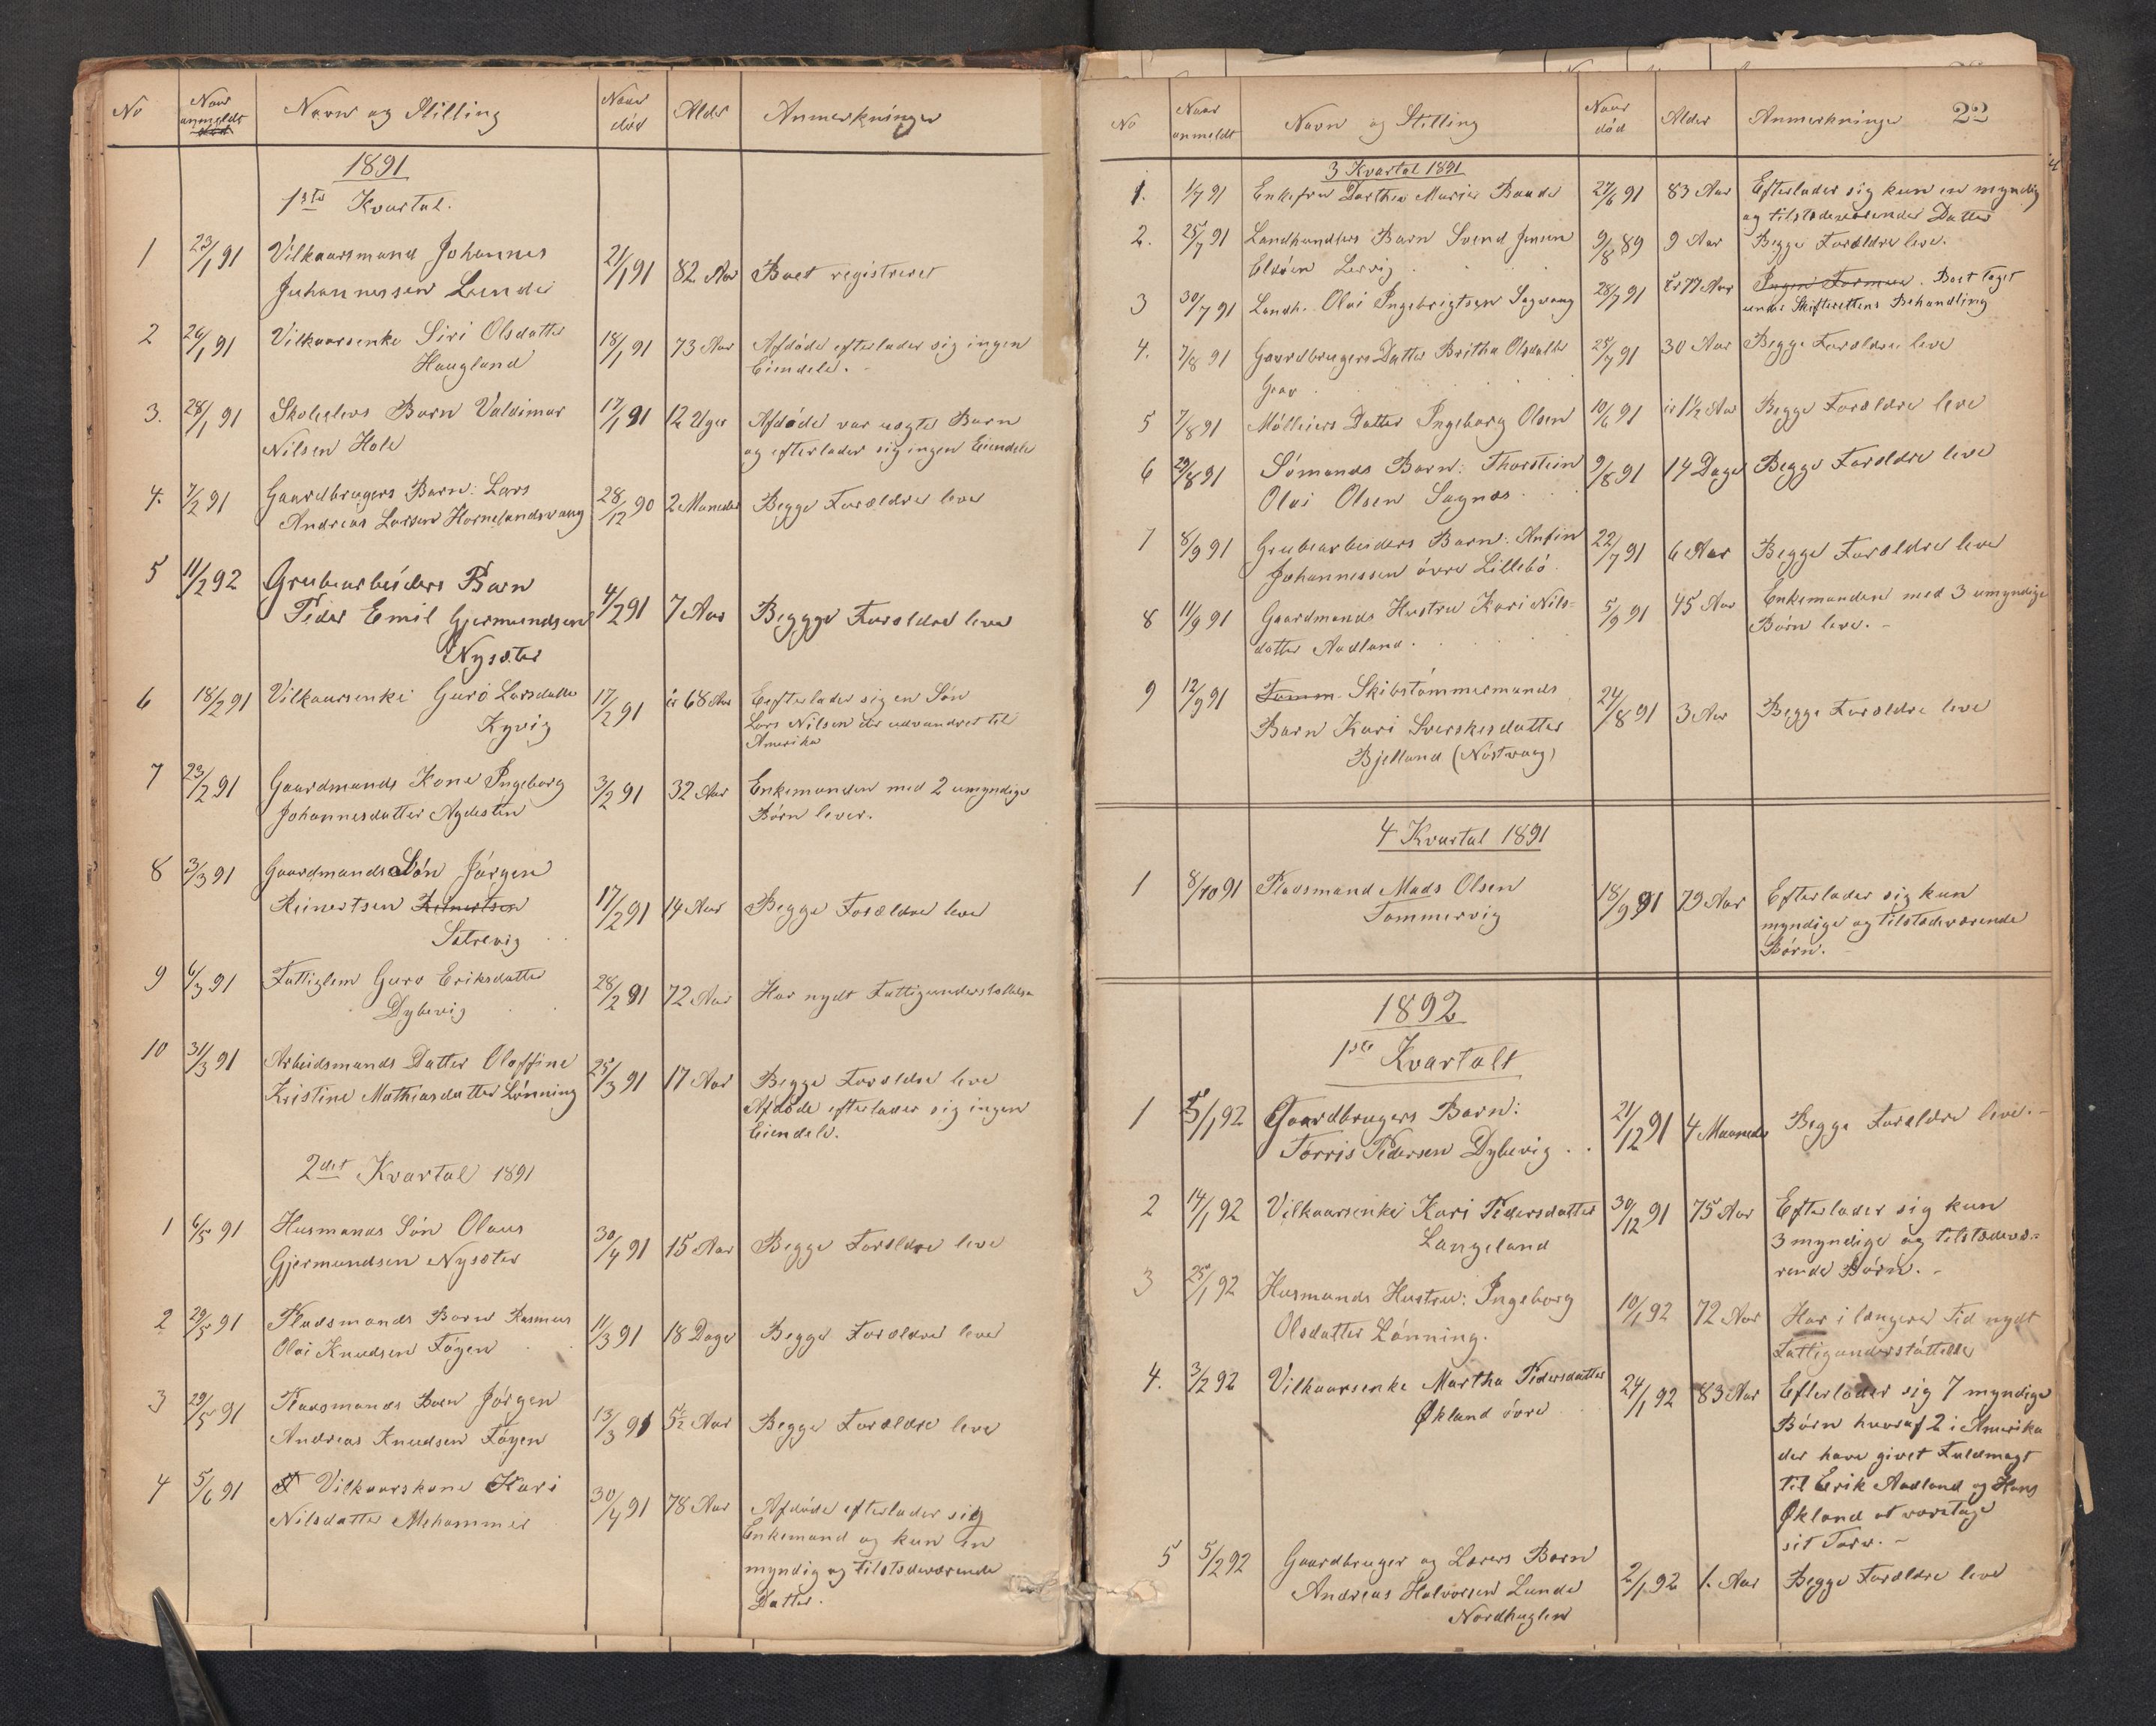 No | Naar anmeldt | Navn og Stilling | Naar død | Alder | Anmerkninger
1891
1ste Kvartal.
1 | 23/1 91 | Vilkaarsmand Johannes | 21/1 91 | 82 Aar | Boet registreret
Johannessen Lunde
2 | 26/1 91 | Vilkaarsenke Siri Olsdatter | 18/1 91 | 73 Aar | Afdøde efterlader sig ingen
Haugland | Eiendele.
3. | 28/1 91 | Skoleelevs Barn Valdimar | 17/1 91 | 12 Uger | Afdøde var uægte Barn
Nilsen Hole | og efterlader sig ingen Eiendele
4. | 7/2 91 | Gaardbrugers Barn: Lars | 28/12 90 | 2 Maneder | Begge Forældre lever
Andreas Larsen Hornelandsvaag
5 | 11/2 92 | Grubearbeiders Barn
Peder Emil Gjermundsen | 4/2 91 | 7 Aar | Beggge Forældre lever
Nysæter
6 | 18/2 91 | Vilkaarsenke Guro Larsdatter | 17/2 91 | ir 68 Aar | Eefterlader sig en Søn
Kyvig | Lars Nilsen der udvandret til
Amerika
7 | 23/2 91 | Gaardmands Kone Ingeborg | 3/2 91 | 32 Aar | Enkemanden med 2 umyndige
Johannesdatter Agdesten | Børn lever.
8 | 3/3 91 | Gaardmands Søn Jørgen
Reinertsen Reinertsen | 17/2 91 | 14 Aar | Begge Forældre lever
Sætrevig
9 | 6/3 91 | Fattiglem Guro Eriksdatter | 28/2 91 | 72 Aar | Har nydt Fattigunderstøttelse
Dybevig
10 | 31/3 91 | Arbeidsmands Datter Oloffine | 25/3 91 | 17 Aar | Begge Forældre leve
Kristine Mathiasdatter Lønning | Afdøde efterlader sig ingen
Eiendele.
2det Kvartal 1891
1 | 6/5 91 | Husmands Søn Olaus | 30/4 91 | 15 Aar | Begge Forældre leve
Gjermundsen Nysæter
2 | 29/5 91 | Pladsmands Barn Rasmus | 11/3 91 | 18 Dage | Begge Forældre lever
Olai Knudsen Føyen
3 | 29/5 91 | Pladsmands Barn Jørgen | 13/3 91 | 5½ Aar | Begge Forældre leve
Andreas Knudsen Føyen
4 | 5/6 91 | Vilkaarskone Kari | 30/4 91 | 78 Aar | Afdøde efterlader sig
Nilsdatter Mehammer | Enkemand og kun en
myndig og tilstedeværende
Datter.
No | Naar anmeldt | Navn og Stilling | Naar død | Alder | Anmerkninge | 22
3 Kvartal 1891
1. | 1/7 91 | Enkefru Dorthea Marie Baade | 27/6 91 | 83 Aar | Efterlader sig kun en myndig
og tilstedeværende Datter
2. | 25/7 91 | Landhandlers Barn Svend Jensen | 9/8 89 | 9 Aar | Begge Forældre leve.
Eldøen Lervig
3 | 30/7 91 | Landh. Olai Ingebrigtsen Sagvaag | 28/7 91 | ir 77 Aar | Ingen Formue. Boet taget
under Skifterettens Behandling
4. | 7/8 91 | Gaardbrugers Datter Britha Olsdatter | 25/7 91 | 30 Aar | Begge Forældre leve
Grov
5 | 7/8 91 | Møllers Datter Ingeborg Olsen | 10/6 91 | ir 1½ Aar | Begge Forældre leve
6 | 29/8 91 | Sømands Barn: Thorstein | 9/8 91 | 14 Dage | Begge Forældre leve
Olai Olsen Sagnæs
7 | 8/9 91 | Grubearbeiders Barn: Anfin | 22/7 91 | 6 Aar | Begge Forældre leve
Johannessen øvre Lillebø.
8 | 11/9 91 | Gaardmands Hustru Kari Nils- | 5/9 91 | 45 Aar | Enkemanden med 3 umyndige
datter Aadland. | Børn leve.
9 | 12/9 91 | Tømm Skibstømmermands
Barn Kari Sverkesdatter | 24/8 91 | 3 Aar | Begge Forældre leve
Bjelland (Nóstvaag)
4 Kvartal 1891
1 | 8/10 91 | Pladsmand Mads Olsen | 18/9 91 | 79 Aar | Efterlader sig kun
Tømmervig | myndige og tilstedeværende
Børn.
1892
1ste Kvartalt
1 | 5/1 92 | Gaardbrugers Barn: | 21/12 91 | 4 Maaneder | Begge Forældre leve.
Tørris Pedersen Dybevig
2 | 14/1 92 | Vilkaarsenke Kari Pedersdatter | 30/12 91 | 75 Aar | Efterlader sig kun
Langeland | 3 myndige og tilstedevæ-
rende Børn.
3 | 25/1 92 | Husmands Hustru: Ingeborg | 10/1 92 | 72 Aar | Har i længere Tid nydt
Olsdatter Lønning. | Fattigunderstøttelse
4. | 3/2 92 | Vilkaarsenke Martha Pedersdatter | 24/1 92 | 83 Aar | Efterlader sig 7 myndige
Økland øvre | Børn hvoraf 2 i Amerika
der have givet Fuldmagt
til Erik Aadland og Hans
Økland at varetage
sit Tarv.
5 | 5/2 92 | Gaardbruger og Lærers Barn
Andreas Halvorsen Lunde | 2/1 92 | 1. Aar | Begge Forældre leve
Nordhuglen